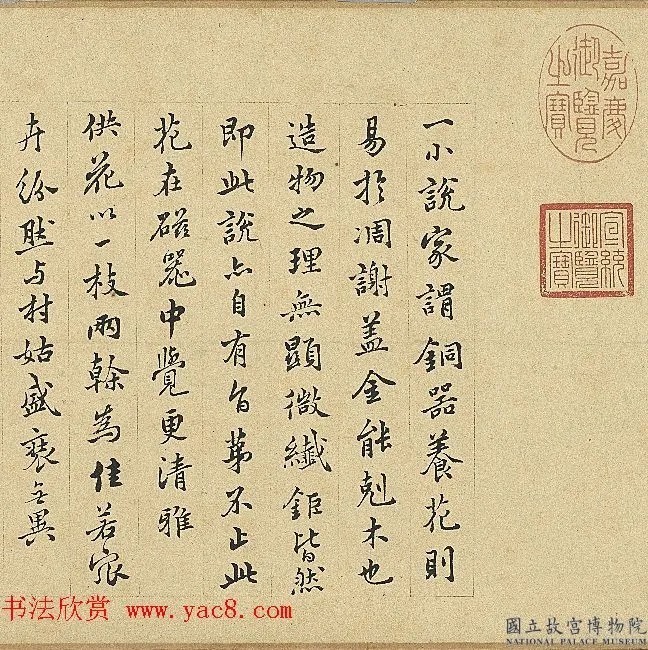 嘉慶
御覽
之寶
宣統
御覽
之寶
一小說家謂銅器養花則
易於凋謝蓋金能剋木也
造物之理無顯微纖鉅皆然
即此說亦自有旨第不止此
花在磁器中覺更清雅
供花以一枝兩榦為佳若眾
卉紛然与村姑盛襃無異
书法欣赏 www.yac8.com
國立故宮博物院
NATIONAL PALACE MUSEUM